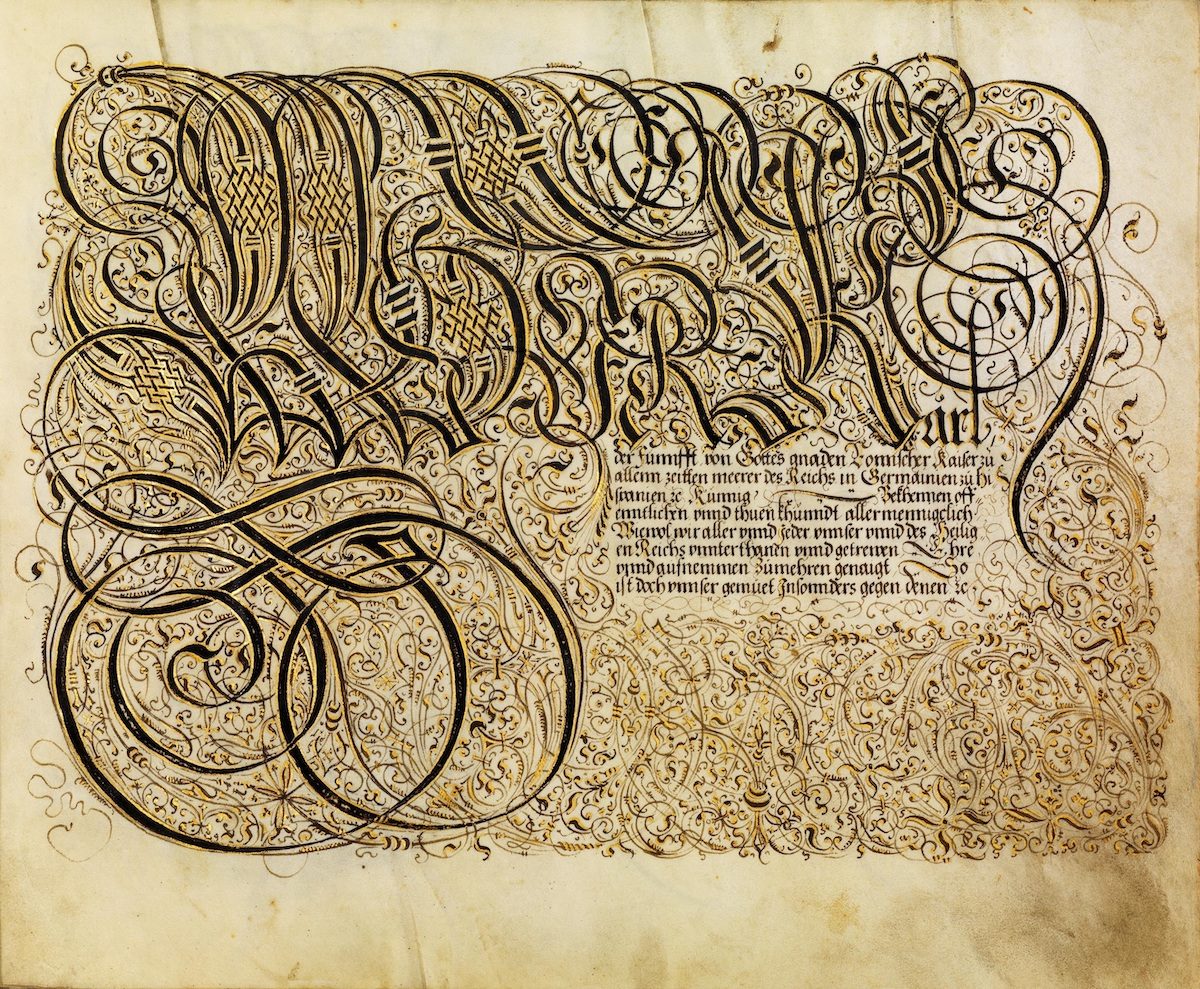 Karl
der funnfft von Gottes gnaden Romischer Kaiser zu
allenn zeitten meerer des Reichs in Germainien zu hi
spanien ꝛc Kunnig Bekhennen off
enntlichen vnnd thuen khunndt allermennigelich
Wiewol wir aller vnnd jeder vnnser vnnd des Heilig
en Reichs vnnterthanen vnnd getrewen Ehre
vnnd aufnemmen zu mehren genaigt So
ist doch vnnser gemuet Insonnders gegen denen ꝛc